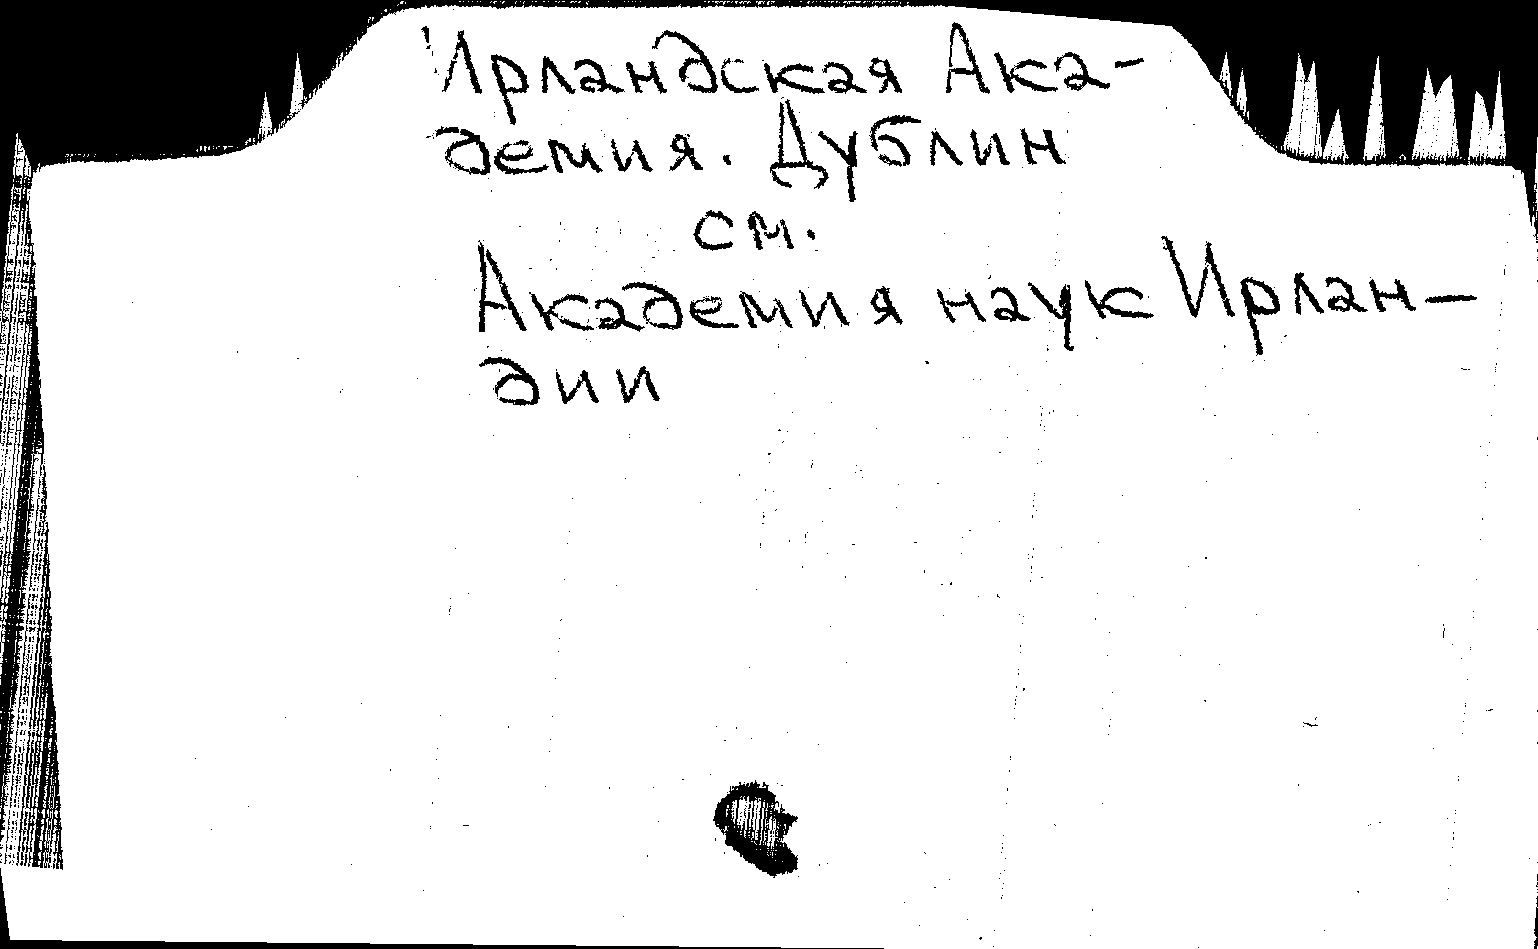 Ирландская Ака-
демия. Дублин
см.
Академия наук Ирлан-
дии